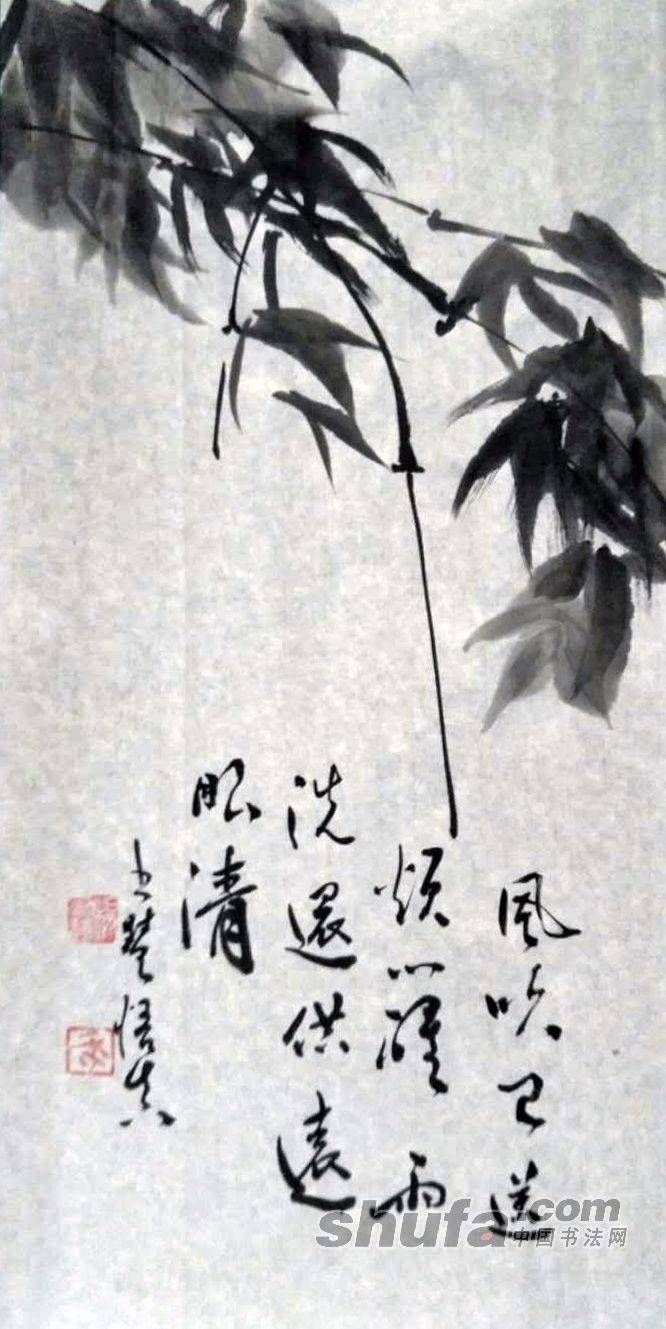 風吹已送
煩心醒雨
洗還供遠
眼清
悟真
shufa.com
中国书法网